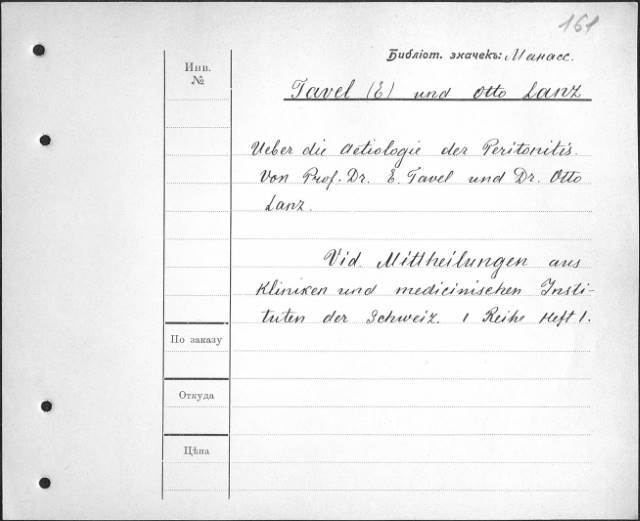 161
Библіот. значекъ: Манасс.
Инв.
№
Tavel (E) und Otto Lanz
Ueber die Aetiologie der Peritonitis.
Von Prof. Dr. E. Tavel und Dr. Otto
Lanz.
Vid. Mittheilungen aus
Kliniken und medicinischen Insti-
tuten der Schweiz. 1 Reihe Heft 1.
По заказу
Откуда
Цѣна